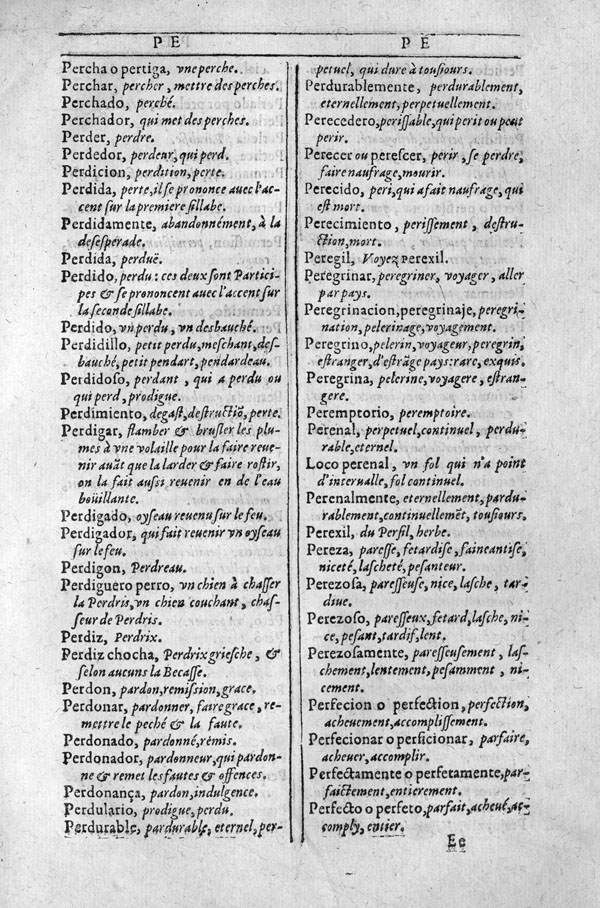 PE
PE
Percha o pertiga, vne perche.
Perchar, percher, mettre des perches.
Perchado, perché.
Perchador, qui met des perches.
Perder, perdre.
Perdedor, perdeur, qui perd.
Perdicion, perdition, perte.
Perdida, perte, il se prononce auec l'ac-
cent sur la premiere sillabe.
Perdidamente, abandonnément, à la
desesperade.
Perdida, perduë.
Perdido, perdu : ces deux sont Partici-
pes & se prononcent auec l'accent sur
la seconde sillabe.
Perdido, vn perdu, vn desbauché.
Perdidillo, petit perdu, meschant, des-
bauché, petit pendart, pendardeau.
Perdidoso, perdant, qui a perdu ou
qui perd, prodigue.
Perdimiento, degast, destructiõ, perte.
Perdigar, flamber & brusler les plu-
mes à vne volaille pour la faire reue-
nir auãt que la larder & faire rostir,
on la fait aussi reuenir en de l'eau
boüillante.
Perdigado, oyseau reuenu sur le feu.
Perdigador, qui fait reuenir vn oyseau
sur le feu.
Perdigon, Perdreau.
Perdiguero perro, vn chien à chasser
la Perdris, vn chien couchant, chas-
seur de Perdris.
Perdiz, Perdrix.
Perdiz chocha, Perdrix griesche, &
selon aucuns la Becasse.
Perdon, pardon, remission, grace.
Perdonar, pardonner, faire grace, re-
mettre le peché & la faute.
Perdonado, pardonné, remis.
Perdonador, pardonneur, qui pardon-
ne & remet les fautes & offences.
Perdonança, pardon, indulgence.
Perdulario, prodigue, perdu.
Perdurable, pardurable, eternel, per-
petuel, qui dure à tousiours.
Perdurablemente, perdurablement,
eternellement, perpetuellement.
Perecedero, perissable, qui perit ou peut
perir.
Perecer ou perescer, perir, se perdre,
faire naufrage, mourir.
Perecido, peri, qui a fait naufrage, qui
est mort.
Perecimiento, perissement, destru-
ction, mort.
Peregil, Voyez Perexil.
Peregrinar, peregriner, voyager, aller
par pays.
Peregrinacion, peregrinaje, peregri-
nation, pelerinage, voyagement.
Peregrino, pelerin, voyageur, peregrin,
estranger, d'estrãge pays: rare, exquis.
Peregrina, pelerine, voyagere, estran-
gere.
Peremptorio, peremptoire.
Perenal, perpetuel, continuel, perdu-
rable, eternel.
Loco perenal, vn fol qui n'a point
d'interualle, fol continuel.
Perenalmente, eternellement, pardu-
rablement, continuellemẽt, tousiours.
Perexil, du Persil, herbe.
Pereza, paresse, fetardise, faineantise,
niceté, lascheté, pesanteur.
Perezosa, paresseuse, nice, lasche, tar-
diue.
Perezoso, paresseux, fetard, lasche, ni-
ce, pesant, tardif, lent.
Perezosamente, paresseusement, las-
chement, lentement, pesamment, ni-
cement.
Perfecion o perfection, perfection,
acheuement, accomplissement.
Perfecionar o perficionar, parfaire,
acheuer, accomplir.
Perfectamente o perfetamente, par-
faictement, entierement.
Perfecto o perfeto, parfait, acheué, ac-
comply, entier.
Ee